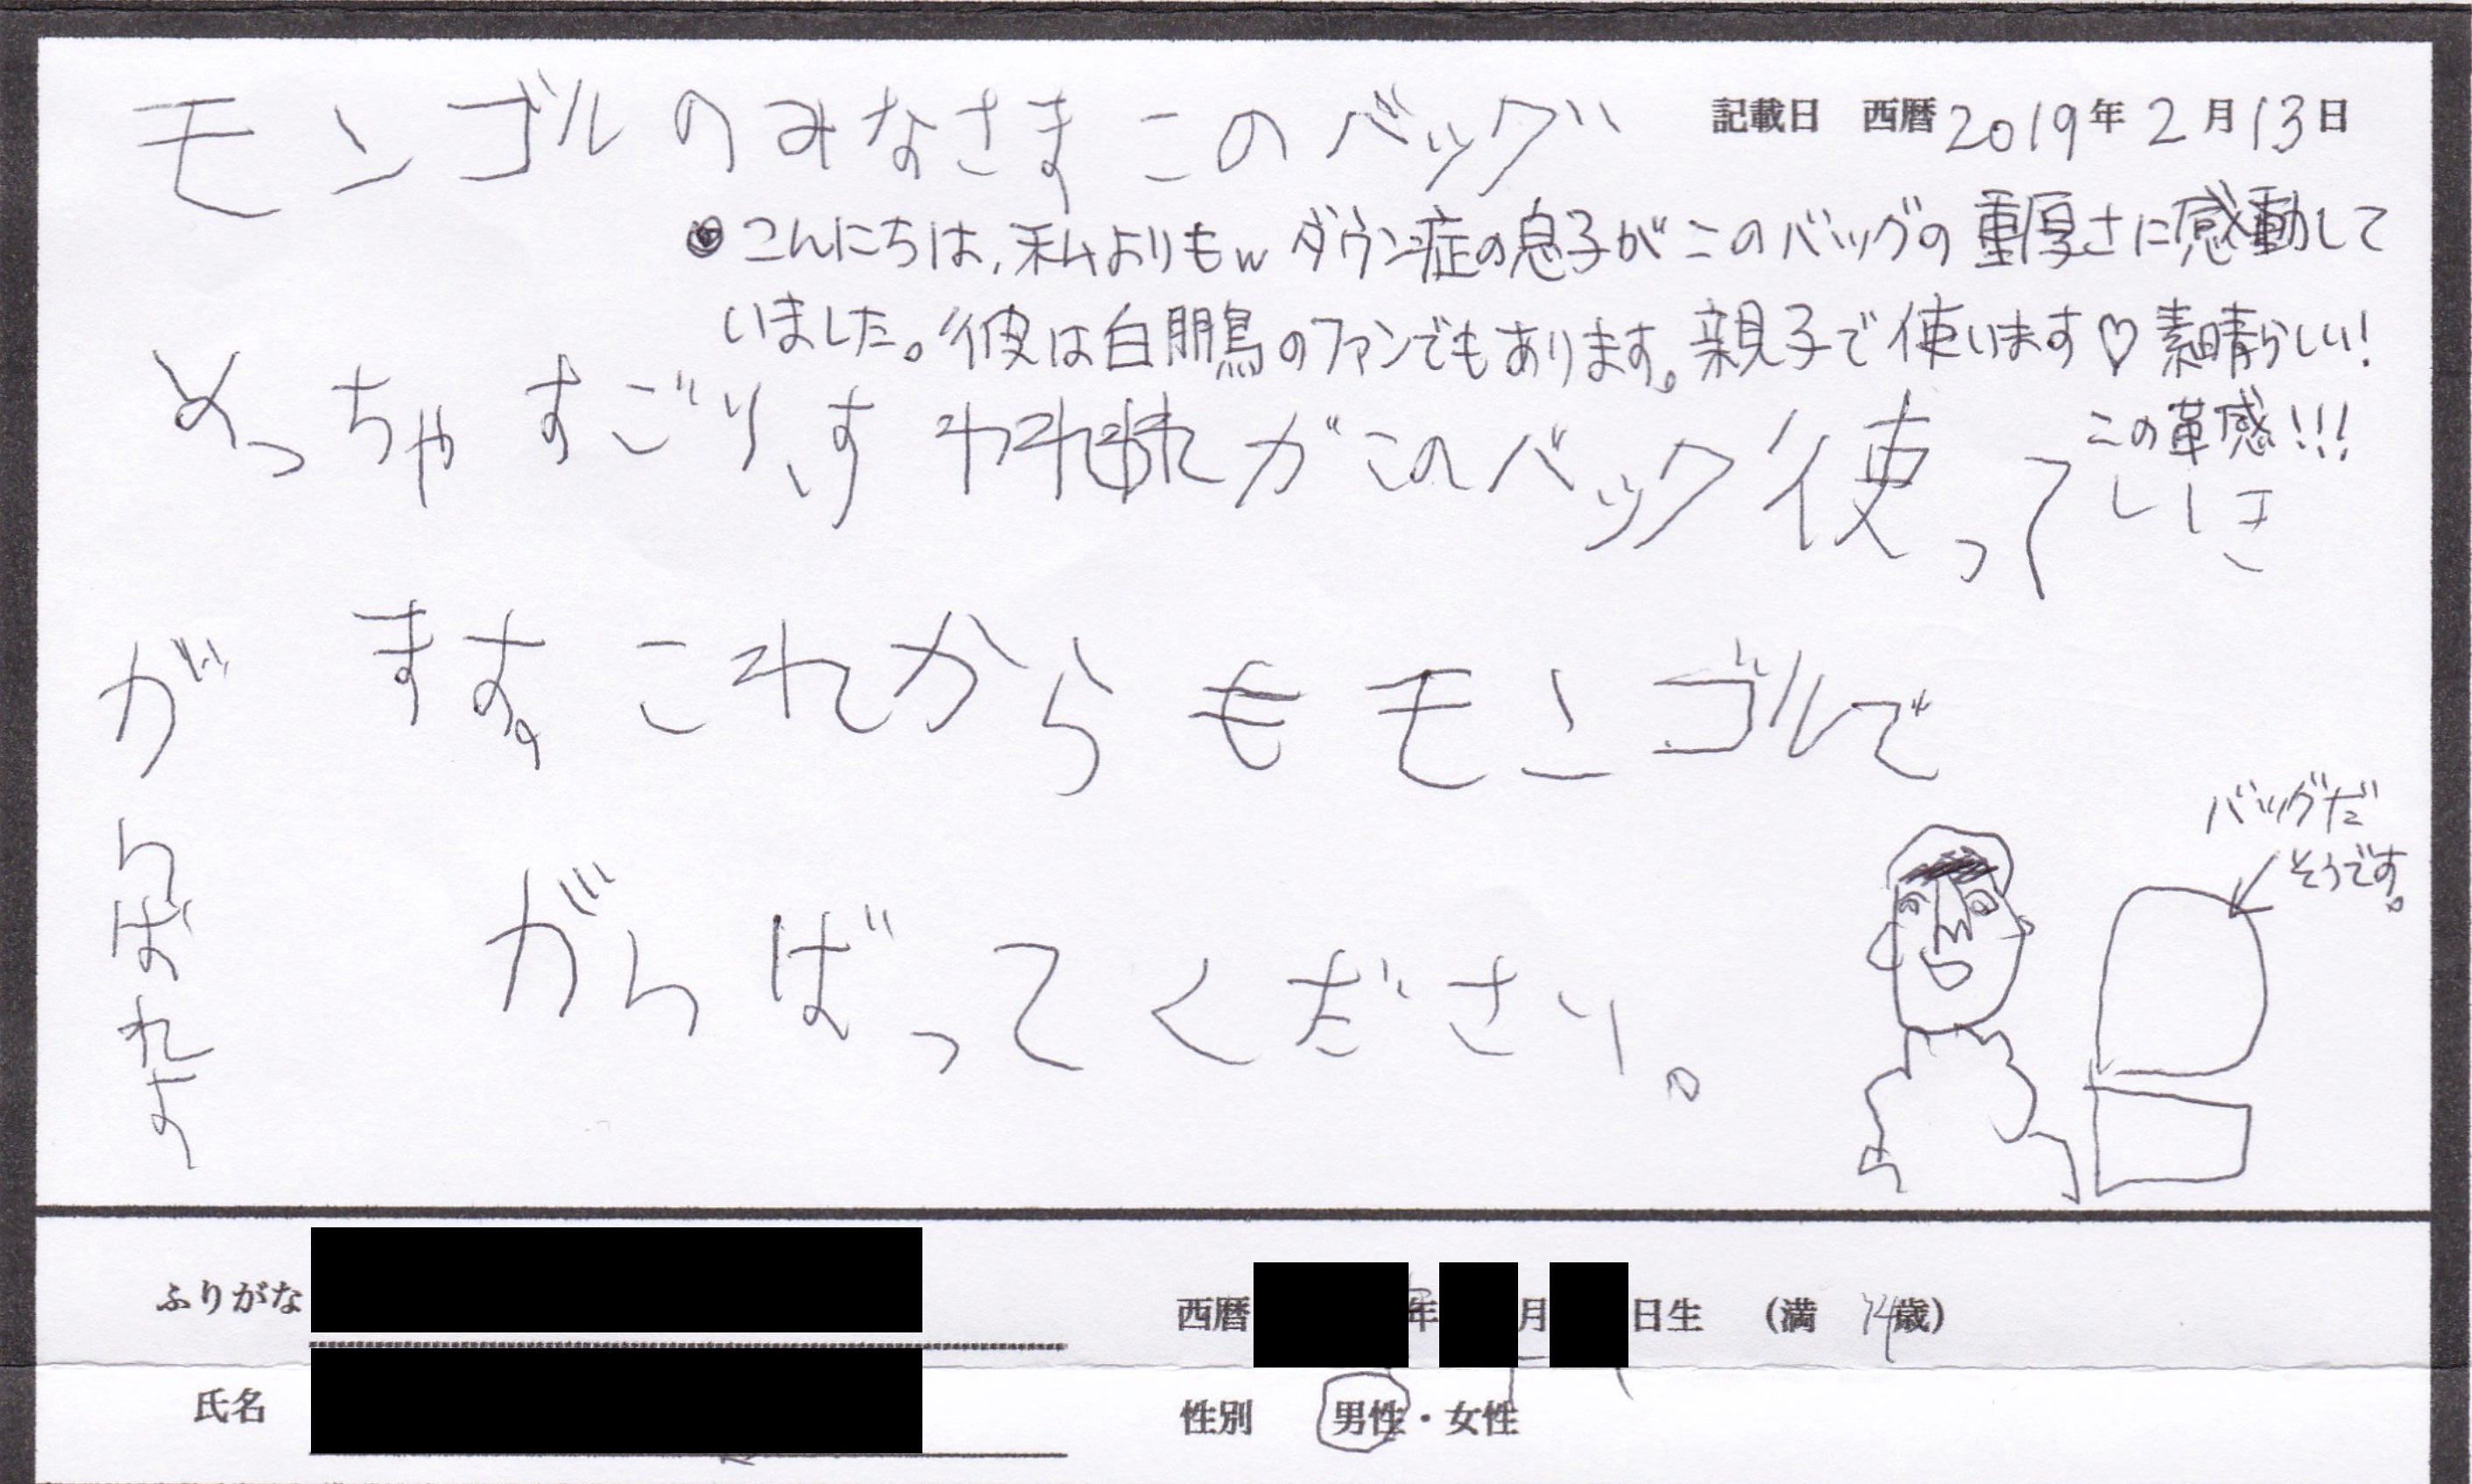 記載日 西暦2019年2月13日
モンゴルのみなさまこのバッグ
◎こんにちは、私よりもw ダウン症の息子がこのバッグの重厚さに感動して
いました。彼は白鵬のファンでもあります。親子で使います♡素晴らしい!
この革感!!!
めっちゃすごいす
がこのバック使っていき
ます。これからもモンゴルで
がんばってください。
がんばれよ
バッグだ
そうです。
ふりがな
西暦 年 月 日生 (満 14歳)
氏名
性別 男性・女性